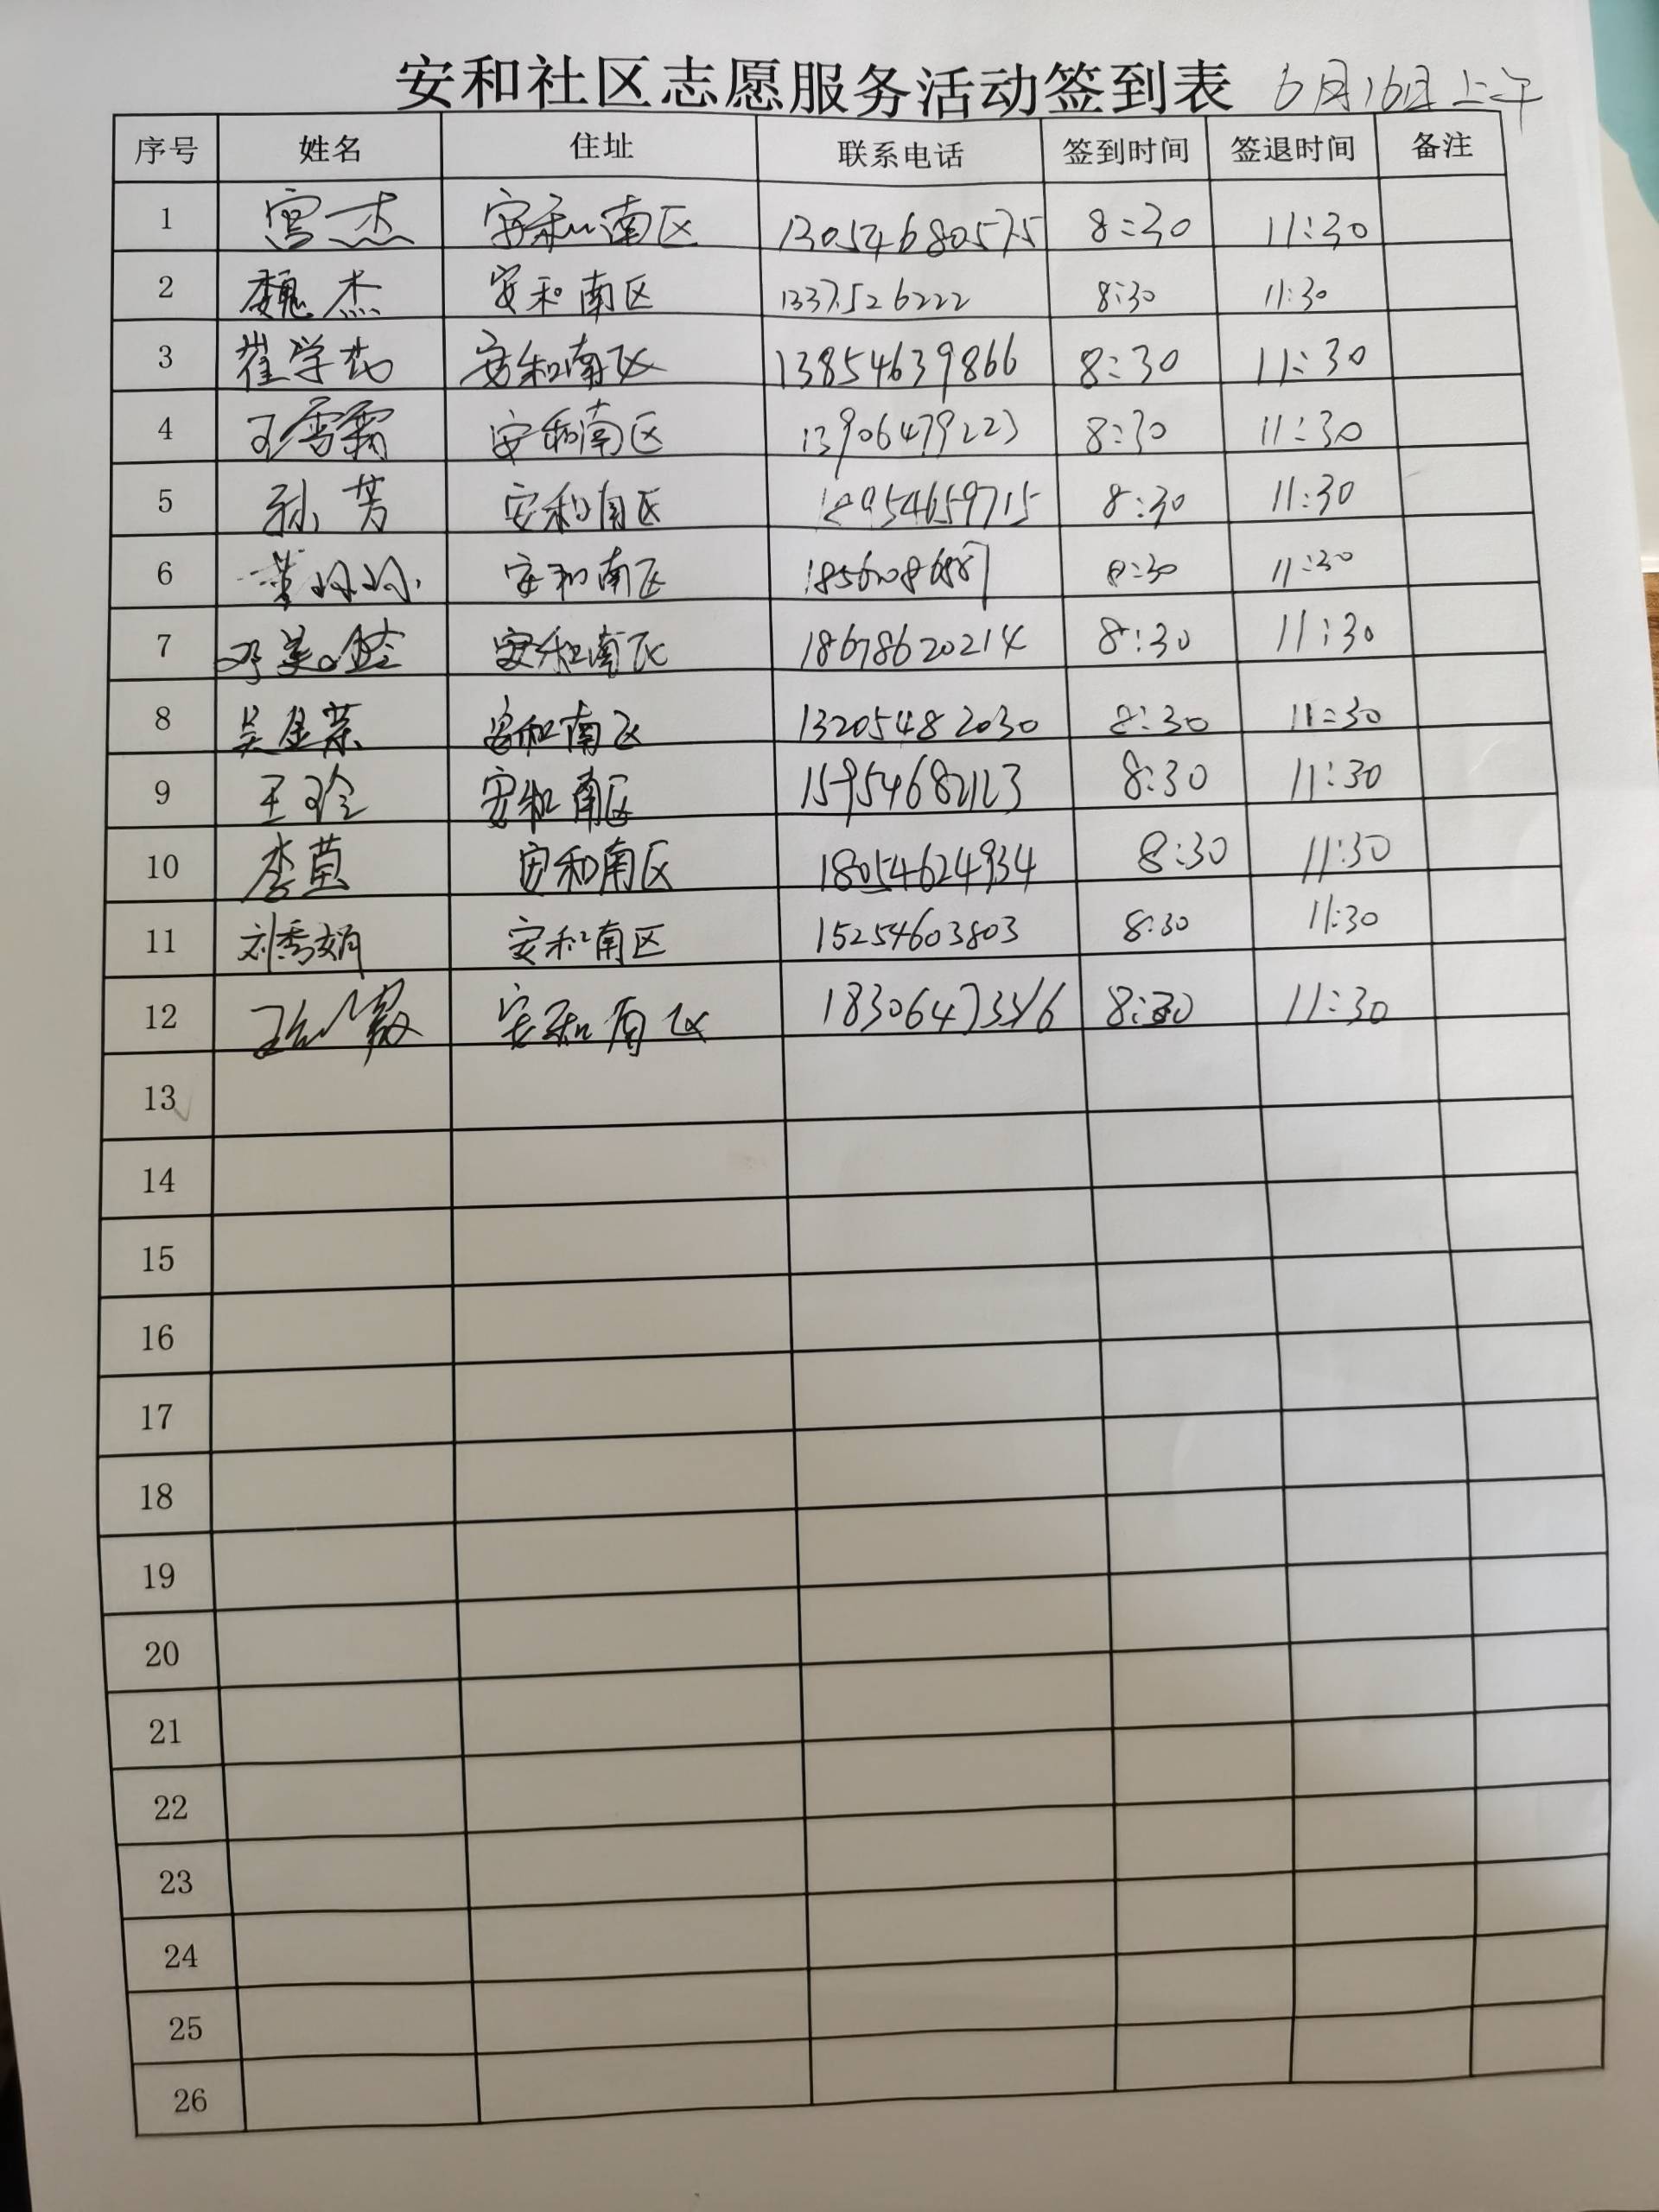 安和社区志愿服务活动签到表 6月16日上午
序号 姓名 住址 联系电话 签到时间 签退时间 备注
1 宫杰 安和南区 13054680575 8:30 11:30
2 魏杰 安和南区 1337526222 8:30 11:30
3 崔学花 安和南区 13854639866 8:30 11:30
4 王雪霜 安和南区 13906479223 8:30 11:30
5 孙芳 安和南区 18954659715 8:30 11:30
6 安和南区 8:30 11:30
7 邓美 安和南区 18678620214 8:30 11:30
8 吴金荣 安和南区 13205482030 8:30 11:30
9 王玲 安和南区 15954682123 8:30 11:30
10 李茵 安和南区 18054624934 8:30 11:30
11 刘秀娟 安和南区 15254603803 8:30 11:30
12 安和南区 8:30 11:30
13
14
15
16
17
18
19
20
21
22
23
24
25
26